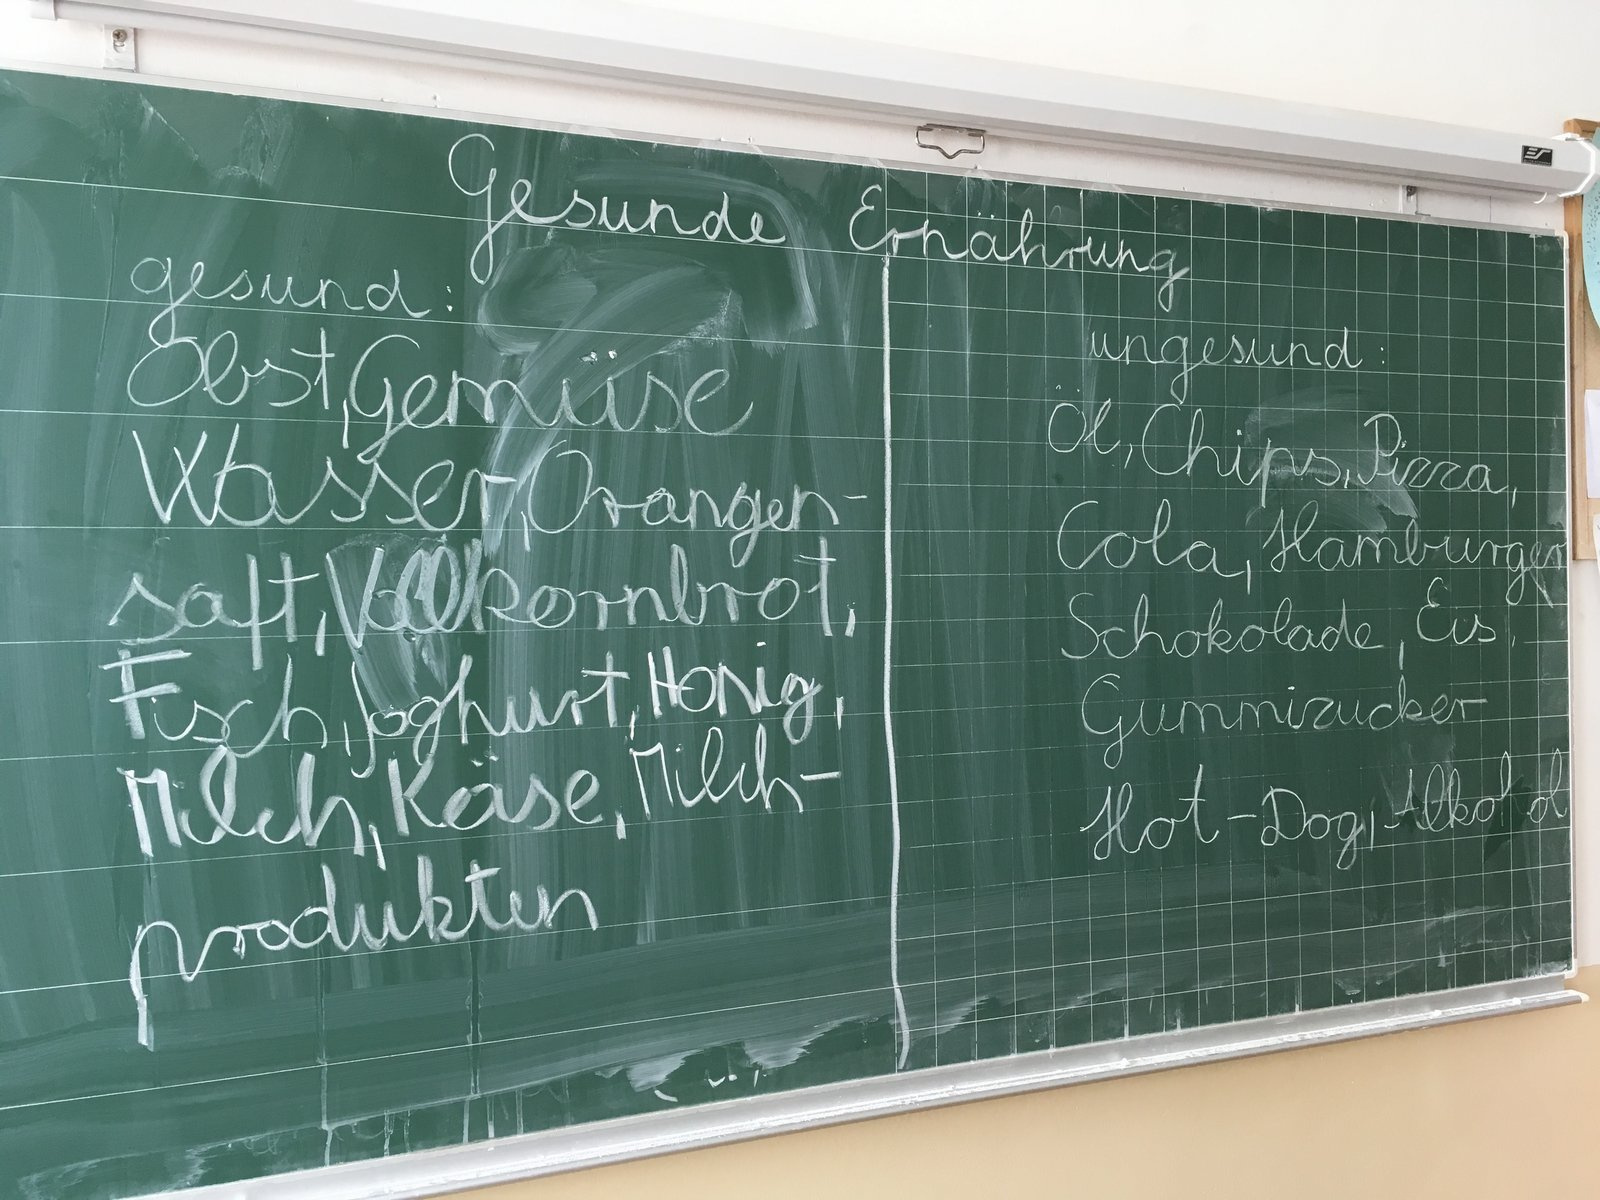 Gesunde Ernährung
gesund:
Obst, Gemüse
Wasser, Orangen-
saft, Vollkornbrot,
Fisch, Joghurt, Honig,
Milch, Käse, Milch-
produkten
ungesund:
Öl, Chips, Pizza,
Cola, Hamburger
Schokolade, Eis,
Gummizucker
Hot-Dog, Alkohol
ES